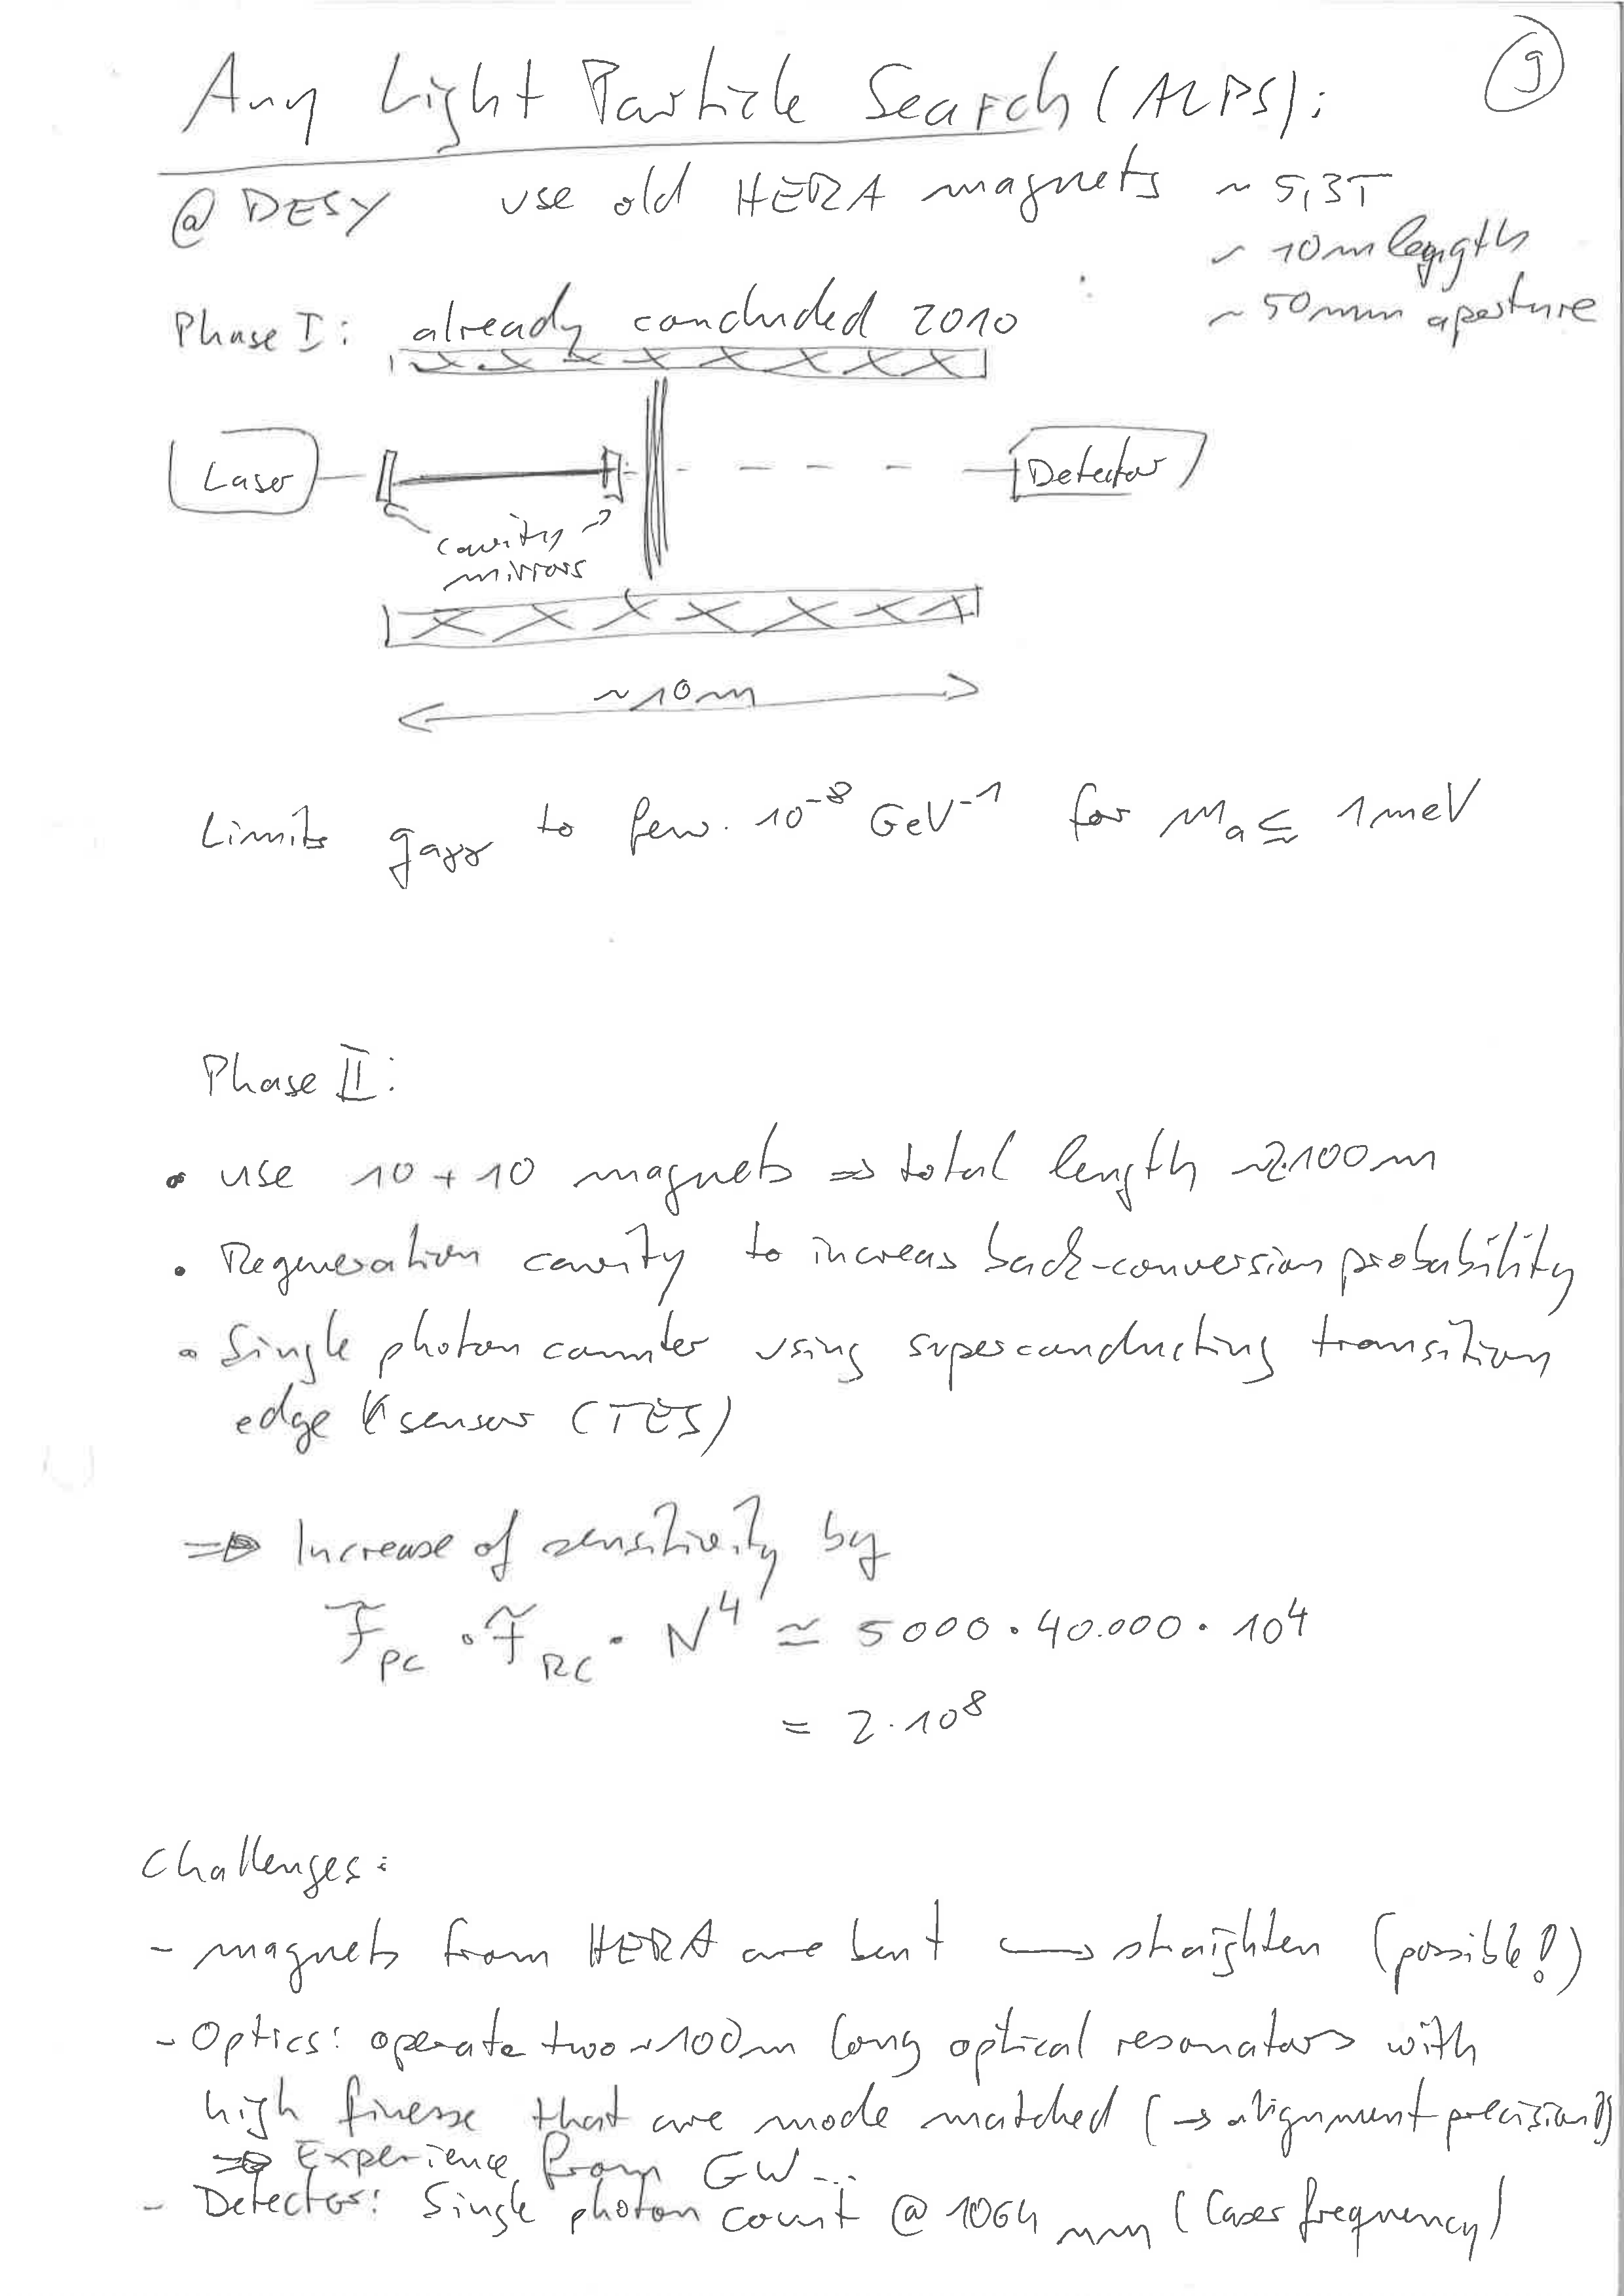 9
Any Light Particle Search (ALPS):
@ DESY use old HERA magnets ~ 5,3T
~ 10m length
~ 50mm aperture
Phase I: already concluded 2010
Laser
Detector
cavity
mirrors
~10m
Limits gaγγ to few · 10⁻⁸ GeV⁻¹ for ma ≲ 1meV
Phase II:
• use 10 + 10 magnets ⇒ total length ~2·100m
• Regeneration cavity to increas back-conversion probability
• Single photon counter using superconducting transition
edge sensor (TES)
⇒ Increase of sensitivity by
F̃PC · F̃RC · N⁴ ≃ 5000 · 40.000 · 10⁴
= 2·10⁸
Challenges:
- magnets from HERA are bent ↪ straighten (possible!)
- Optics: operate two ~100m long optical resonators with
high finesse that are mode matched (→ alignment precision!)
⇒ Experience from GW...
- Detector: Single photon count @ 1064 nm (laser frequency)